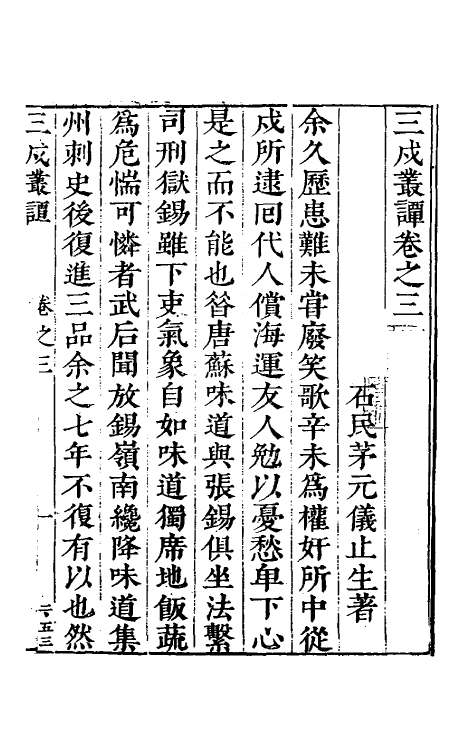 三戍叢譚卷之三
石民茅元儀止生著
余久歷患難未甞廢笑歌辛未爲權奸所中從
戍所逮囘代人償海運友人勉以憂愁卑下心
是之而不能也昝唐蘇味道與張錫俱坐法繫
司刑獄錫雖下吏氣象自如味道獨席地飯蔬
爲危惴可憐者武后聞放錫嶺南纔降味道集
州刺史後復進三品余之七年不復有以也然
三戍叢譚
卷之三
一
二五三